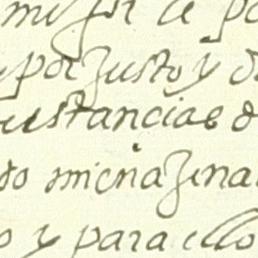 mejor de
por Justo y
ustancias d
do mi enagena
o y para ello